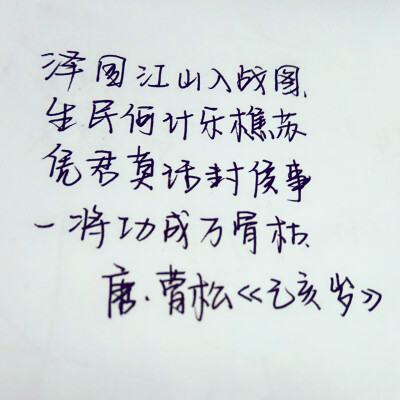 泽国江山入战图,
生民何计乐樵苏
凭君莫话封侯事
一将功成万骨枯.
唐.曹松《乙亥岁》